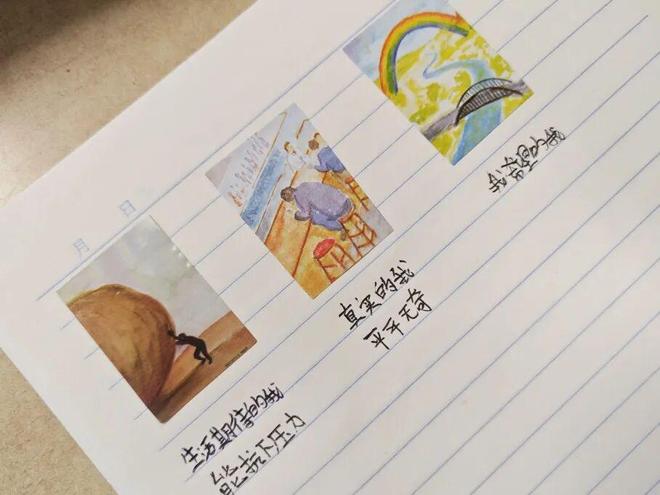 月 日
生活期待的我
能抗下压力
真实的我
平平无奇
我希望的我